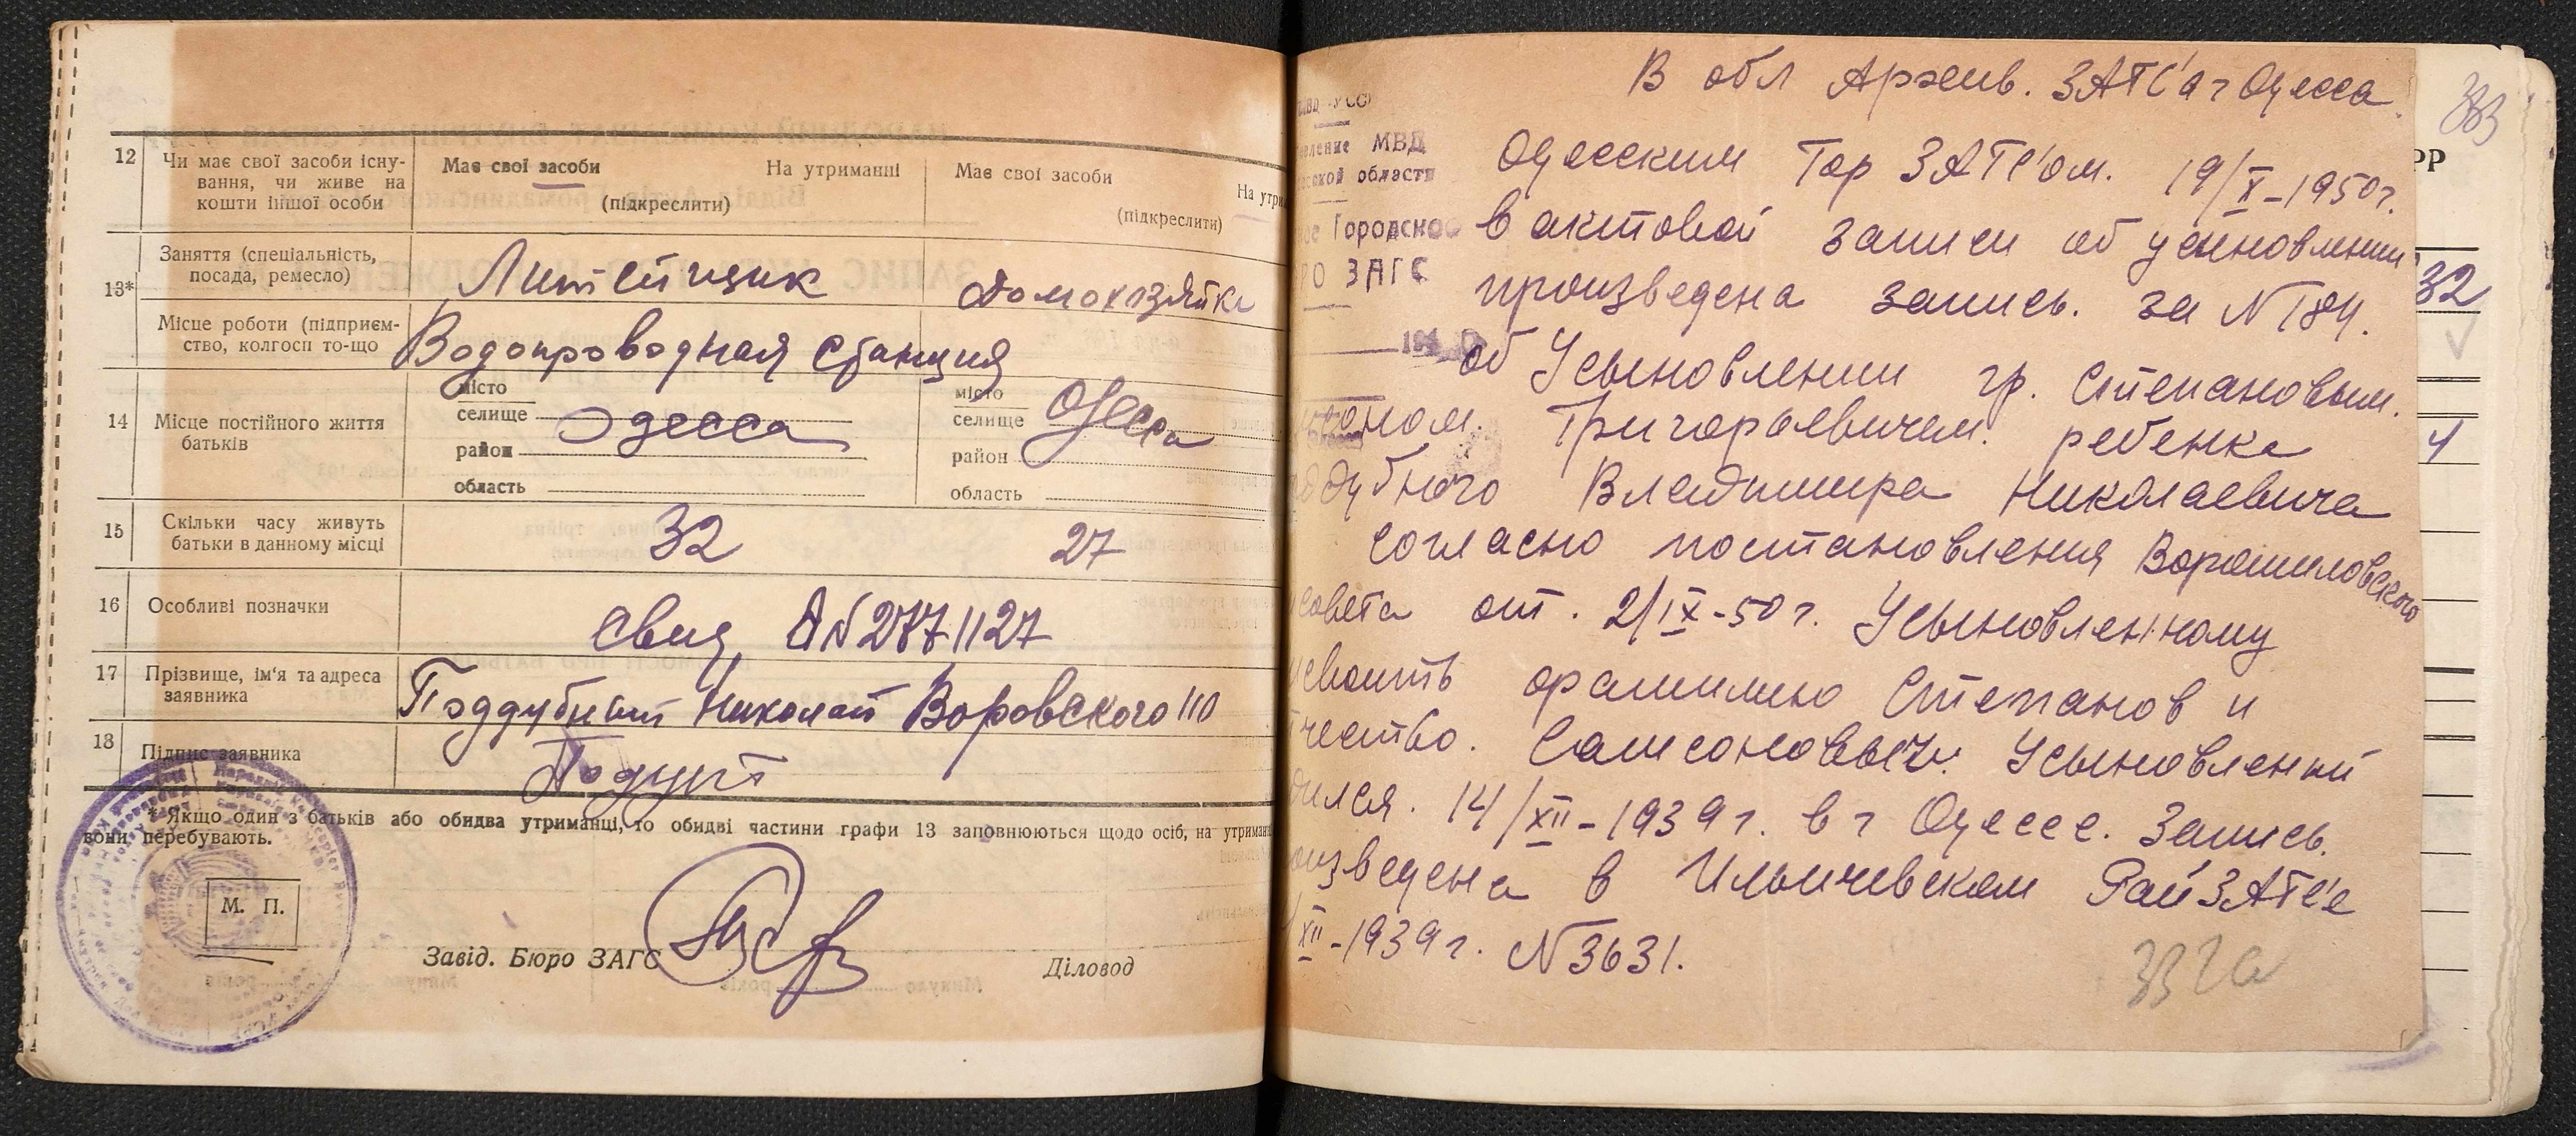 12 Чи має свої засоби існу-
вання, чи живе на
кошти іншої особи
Має свої засоби На утриманні
(підкреслити)
Має свої засоби На утри
(підкреслити)
13* Заняття (спеціальність,
посада, ремесло)
Литейщик
домохозяйка
Місце роботи (підприєм-
ство, колгосп то-що
Водопроводная станция
14 Місце постійного життя
батьків
місто
селище
Одесса
район
область
місто
селище
Одесса
район
область
15 Скільки часу живуть
батьки в данному місці
32
27
16 Особливі позначки
свид
17 Прізвище, ім'я та адреса
заявника
Поддубный Николай Воровского 110
18 Підпис заявника
* Якщо один з батьків або обидва утриманці, то обидві частини графи 13 заповнюються щодо осіб, на утриман
вони перебувають.
М. П.
Завід. Бюро ЗАГС
Діловод
В обл Архив. ЗАГС'а г Одесса.
МВД
области
Одесским Гор ЗАГС'ом. 19/X-1950 г.
Городское
в актовой записи об усыновлении
ЗАГС
произведена запись. за N 184.
об Усыновлении гр. Степановым.
Григорьевичем. ребенка
Владимира Николаевича
согласно постановления Ворошиловского
совета от. 2/IX-50 г. Усыновленному
фамилию Степанов и
Самсонович. Усыновленный
14/XII-1939 г. в г Одессе. Запись.
в Ильичевском РайЗАГС'е
XII-1939 г. N 3631.
332а
383
РР
32
4